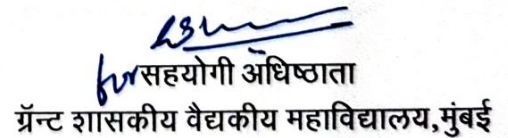 for सहयोगी अधिष्ठाता
ग्रॅन्ट शासकीय वैद्यकीय महाविद्यालय,मुंबई